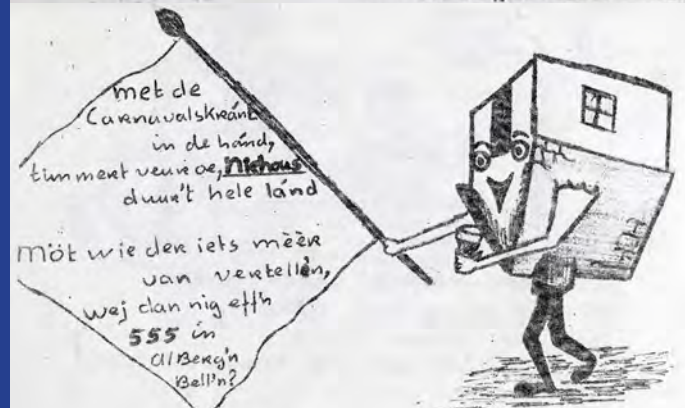 met de
Carnavalskránt
in de hánd,
timmert veur oe, Niehous
duur't hele lánd
Möt wie der iets mèèr
van vertellen,
wej dan nig eff'n
555 in
AlBerg'n
Bell'n?